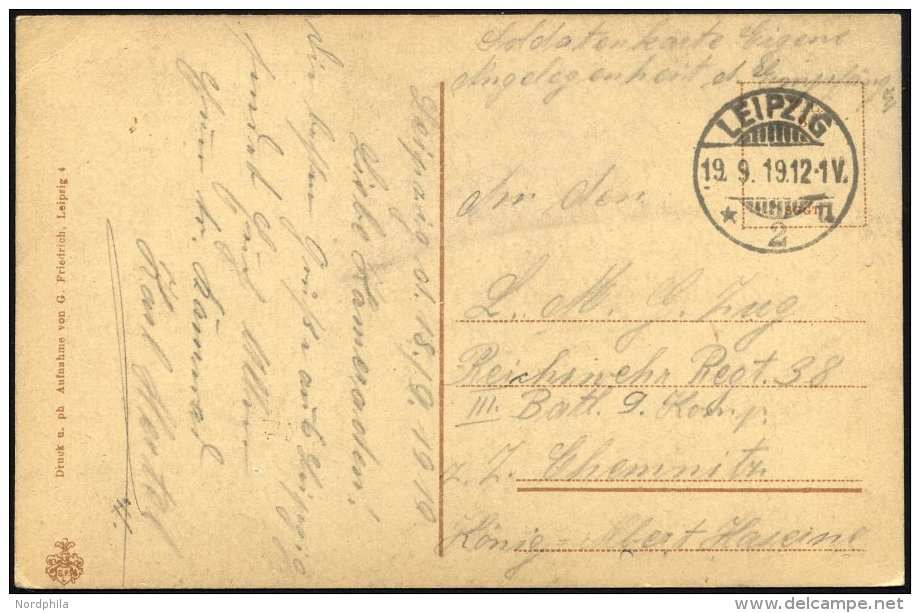 Soldatenkarte Eigene
Angelegenheit d. Empfängers
LEIPZIG
19. 9. 19.12-1V.
* 2 II
An den
L. M. G. Zug
Reichswehr Regt. 38
III. Batl. 9. Komp.
z. Z. Chemnitz
König-Albert Kaserne
Leipzig d. 18./9. 1919
Liebe Kameraden!
Die besten Grüße aus Leipzig
sendet Euch Allen
Euer tr. Kamerad
Karl
Druck u. ph Aufnahme von G. Friedrich, Leipzig 4
G.F.
Nordphila
delcampe.net